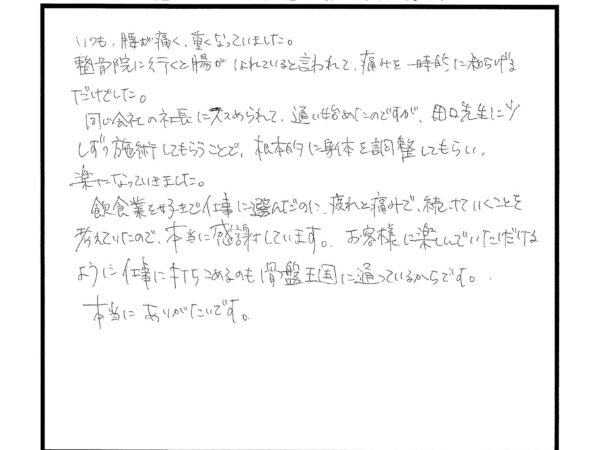 いつも、腰が痛く、重くなっていました。
整骨院に行くと腸がはれていると言われて、痛みを一時的に和らげる
だけでした。
同じ会社の社長にススめられて、通い始めたのですが、田口先生に少
しずつ施術してもらうことで、根本的に身体を調整してもらい、
楽になっていきました。
飲食業を好きで仕事に選んだのに、疲れと痛みで、続けていくことを
考えていたので、本当に感謝しています。お客様に楽しんでいただける
ように仕事に打ちこめるのも骨盤王国に通っているからです。
本当にありがたいです。